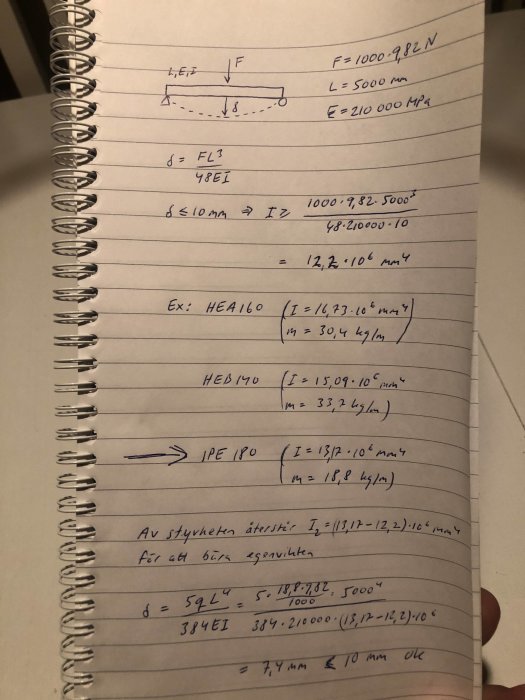 L, E, I
F
F = 1000·9,82 N
L = 5000 mm
E = 210 000 MPa
δ
δ = FL³ / 48EI
δ ≤ 10 mm ⇒ I ≥ 1000·9,82·5000³ / 48·210000·10
= 12,2·10⁶ mm⁴
Ex: HEA160 (I = 16,73·10⁶ mm⁴
m = 30,4 kg/m)
HEB140 (I = 15,09·10⁶ mm⁴
m = 33,7 kg/m)
→ IPE 180 (I = 13,17·10⁶ mm⁴
m = 18,8 kg/m)
Av styvheten återstår I₂ = (13,17-12,2)·10⁶ mm⁴
för att bära egenvikten
δ = 5qL⁴ / 384EI = 5· 18,8·9,82 / 1000 ·5000⁴ / 384·210000·(13,17-12,2)·10⁶
= 7,4 mm ≤ 10 mm ok